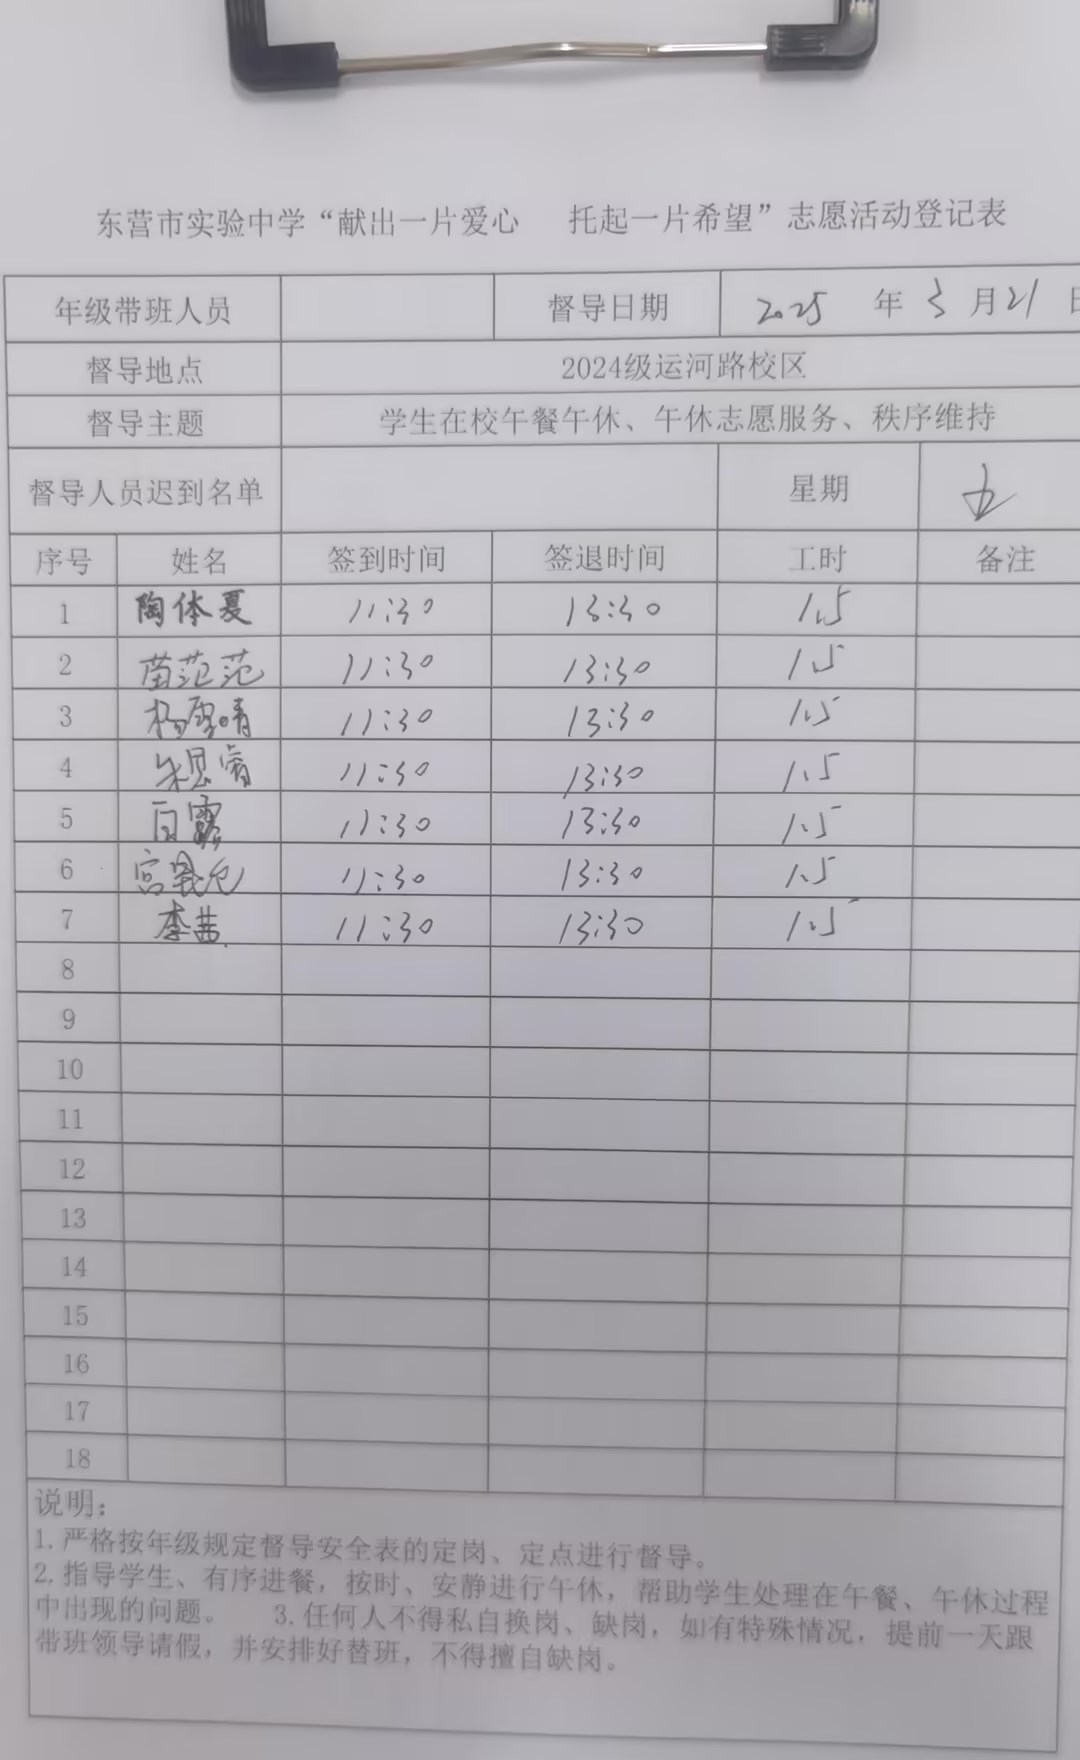 东营市实验中学“献出一片爱心 托起一片希望”志愿活动登记表
年级带班人员 督导日期 2025 年 3 月 21 日
督导地点 2024级运河路校区
督导主题 学生在校午餐午休、午休志愿服务、秩序维持
督导人员迟到名单 星期 五
序号 姓名 签到时间 签退时间 工时 备注
1 陶体夏 11:30 13:30 1.5
2 苗范范 11:30 13:30 1.5
3 杨雪晴 11:30 13:30 1.5
4 朱思睿 11:30 13:30 1.5
5 白露 11:30 13:30 1.5
6 11:30 13:30 1.5
7 李茜 11:30 13:30 1.5
8
9
10
11
12
13
14
15
16
17
18
说明：
1.严格按年级规定督导安全表的定岗、定点进行督导。
2.指导学生、有序进餐，按时、安静进行午休，帮助学生处理在午餐、午休过程
中出现的问题。 3.任何人不得私自换岗、缺岗，如有特殊情况，提前一天跟
带班领导请假，并安排好替班，不得擅自缺岗。